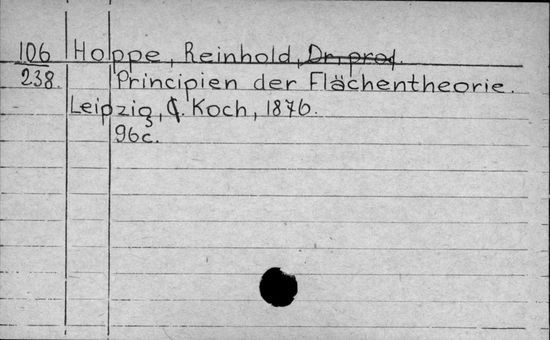 106 Hoppe, Reinhold, Dr, prof.
238. Principien der Flächentheorie.
Leipzig, C. Koch, 1876.
96c.